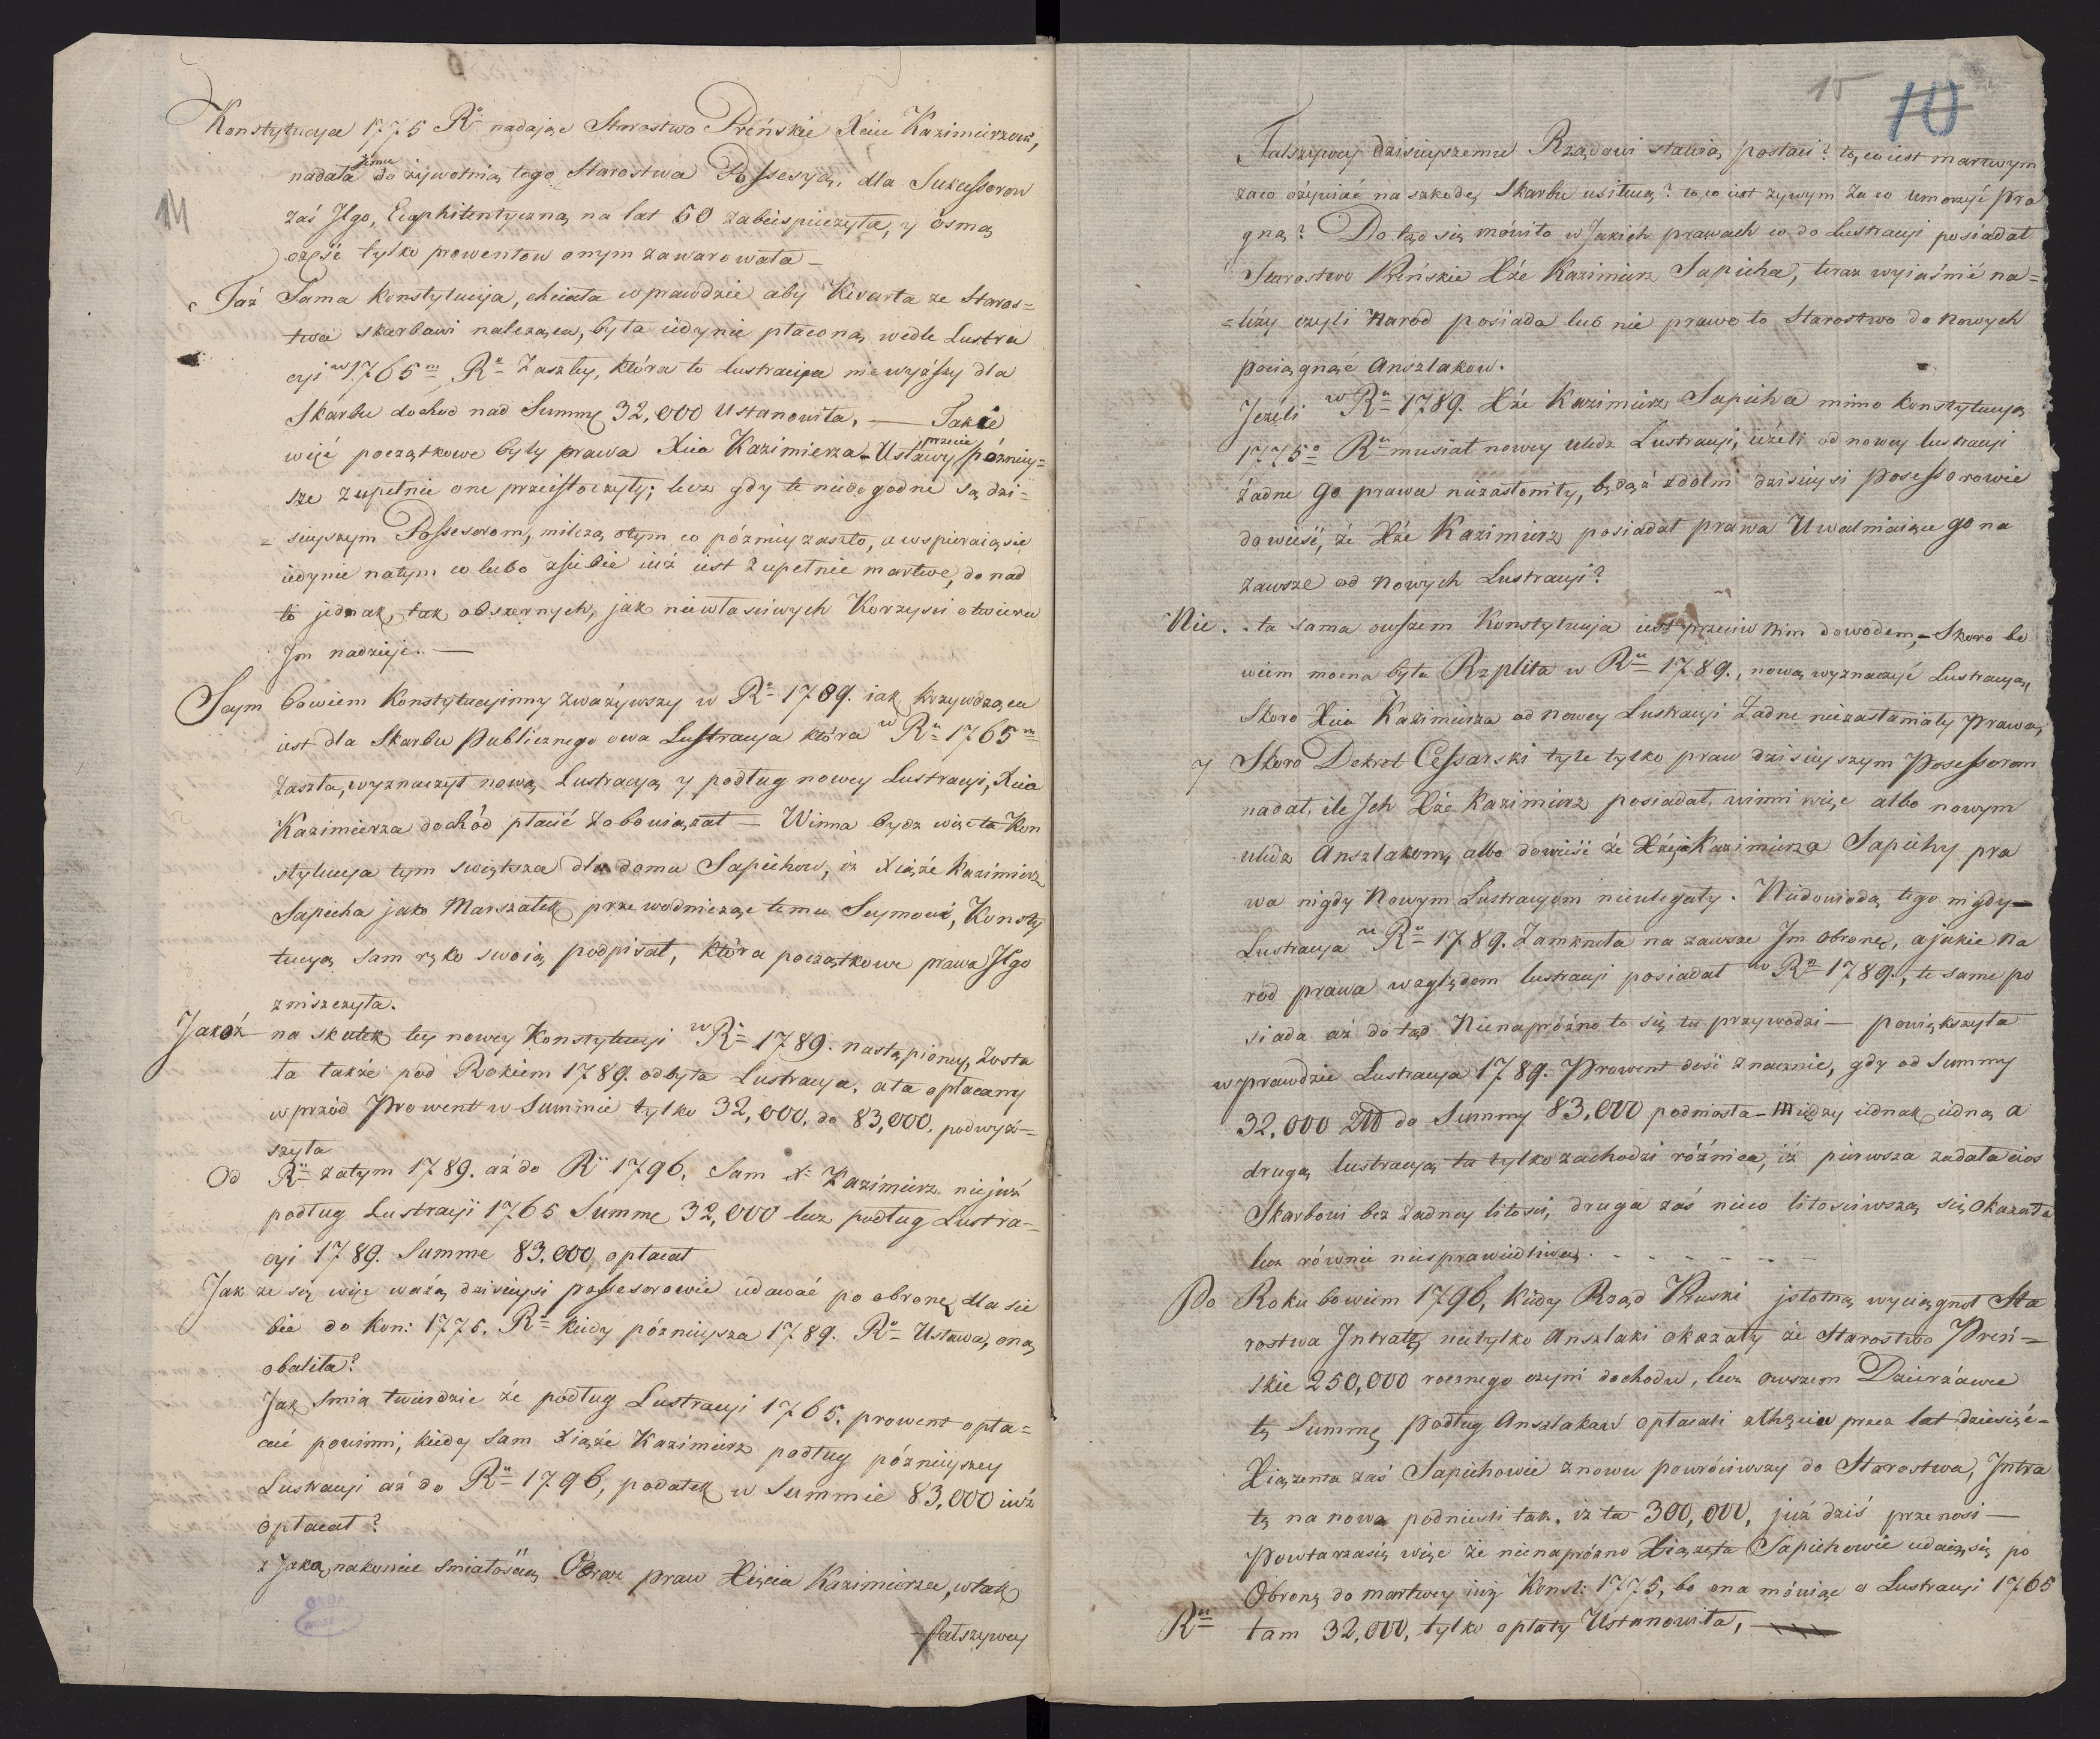 14
Konstytucya 1775 Rº nadając Starostwo Preńskie Xciu Kazimierzowi,
nadała Jemu do żywotnią tego Starostwa Possesyą, dla Sukcessorow
zaś Jego, Emphitentyczną na lat 50 zabeispieczyła, y osmą
część tylko prowentow onym zawarowała —
Taż Sama Konstytucija, chciała wprawdzie aby Kwarta ze Staros=
twa skarbawi należąca, była iedynie płaconą wedle Lustra
cyi w 1765m Rº zaszłey, która to Lustracija nie wyższy dla
Skarbu dochod nad Summę 32,000 ustanowiła, — Takie
więc początkowe były prawa Xcia Kazimierza — Ustawy przecie późniey=
sze zupełnie one przeistoczyły; lecz gdy te niedogodne są dzi=
= sieyszym Possesorom, milczą otym co późniey zaszło, a wspieraią się
iedynie natym co lubo z siebie iuż iest zupełnie martwe, do nad
to jednak, tak obszernych, jak niewłasciwych Korzysci otwiera
Jm nadzieje. —
Saym bowiem Konstytucyinny zważywszy w Rº 1789. iak krzywdząca
iest dla Skarbu Publicznego owa Lustracya która w Rº 1765m
zaszła, wyznaczył nową Lustracyą y podług nowey Lustracyi, Xcia
Kazimierza dochód płacić zobowiązał — Winna bydz więc ta Kon
stytucya tym swiętsza dla domu Sapiehow, iż Xiąże Kazimierz
Sapieha jako Marszałek przewodnicząc temu Seymowi, Konsty
tucyą sam ręko swoią podpisał, która początkowe prawa Jego
zniszczyła.
Jakoż na skutek tey nowey Konstytucyi w Rº 1789. nastąpioney, zosta
ła także pod Rokiem 1789. odbyta Lustracya, a ta opłacany
wprzód Prowent w Summie tylko 32,000, do 83,000, podwyż=
szyła
Od Rº zatym 1789. aż do Rº 1796, Sam X: Kazimierz niejuż
podług Lustracyi 1765 Summę 32,000 lecz podług Lustra=
cyi 1789. Summe 83,000, opłacał
Jak że się więc ważą dzisieysi possesorowie udawać po obronę dla sie
bie do Kon: 1775, Rº kiedy późnieysza 1789. Rº Ustawa, oną
obaliła?
Jak smią twierdzic że podług Lustracyi 1765. prowent opła=
cać powinni, kiedy Sam Xiąże Kazimierz podług późnieyszey
Lustracyi aż do Rº 1796, podatek w Summie 83,000 iuż
opłacał?
z Jaką nakoniec smiałoscią Obraz praw Xięcia Kazimierza, w tak
fałszywey
15
10
Fałszywey dzisieyszemu Rządowi stawią postaci? to, co iest martwym
zaco ożywiać na szkodę Skarbu usiłują? to, co iest żywym za co umorzyć pra
gną? Do tąd się mówiło w Jakich prawach co do Lustracyi posiadał
Starostwo Preńskie Xże Kazimierz Sapieha, teraz wyiaśnić na=
=leży czyli Naród posiada lub nie prawo to Starostwo do nowych
pociągnąć Anszlakow.
Jeżeli w Rº 1789. Xże Kazimierz Sapieha mimo konstytucyą
1775º Rº musiał nowey uledz Lustracyi, ieżeli od nowey lustracyi
żadne go prawa niezasłoniły, będąż zdolni dzisieysi possessorowie
dowieść, że Xże Kazimierz posiadał prawa Uwalniaiące go na
zawsze od Nowych Lustracyi?
Nie. . ta sama owszem Konstytucya iest przeciw Nim dowodem, — Skoro bo
wiem mocna była Rzplita w Rº 1789., nową wyznaczyć Lustracyą,
Skoro Xcia Kazimierza od nowey Lustracyi żadne niezasłaniały prawa,
y Skoro Dekret Cessarski tyle tylko praw dzisieyszym Possessorom
nadał, ile Jch Xże Kazimierz posiadał, winni więc albo nowym
uledz Anszlakom, albo dowieść że Xcia Kazimierza Sapiehy pra
wa nigdy Nowym Lustracyom nieulegały. Niedowiodą tego nigdy —
Lustracya w Rº 1789. zamknęła na zawsze Jm obronę, a jakie Na
ród prawa względem lustracyi posiadał w Rº 1789., te same po
siada aż do tąd Nienapróżno to się tu przywodzi — powiększyła
wprawdzie Lustracya 1789. Prowent dość znacznie, gdy od Summy
32,000 Zł do Summy 83,000 podniosła — między iednak iedną a
drugą lustracyą ta tylko zachodzi różnica, iż pierwsza zadała cios
Skarbowi bez żadney litości, druga zaś nieco litościwszą się okazała
lecz równie niesprawiedliwą. - - - - - - -
Po Roku bowiem 1796, kiedy Rząd Pruski jstotną wyciągnął Sta
rostwa Jntratę nietylko Anszlaki okazały że Starostwo Preń=
skie 250,000 rocznego czyni dochodu, lecz owszem Dzierżawce
tę Summę podług Anszlakow opłacali z chęcią przez lat dziesięć —
Xiążenta zaś Sapiehowie znowu powróciwszy do Starostwa, Jntra
tę na nowo podnieśli tak, iż ta 300,000, już dziś przenosi —
Powtarza się więc że nienapróżno Xiążęta Sapiehowie udaią się po
Obronę do martwey iuż Konst: 1775, bo ona mówiąc o Lustracyi 1765
Rº tam 32,000, tylko opłaty Ustanowiła, —